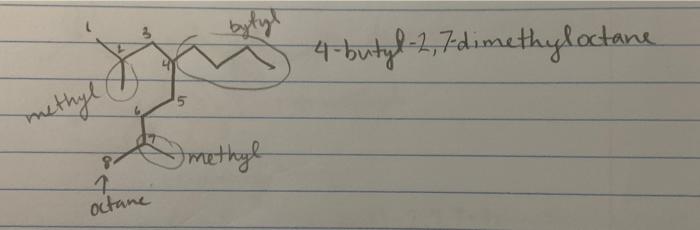 bytyl
4-butyl-2,7-dimethyloctane
1
2
3
4
methyl
5
6
7
8
methyl
octane